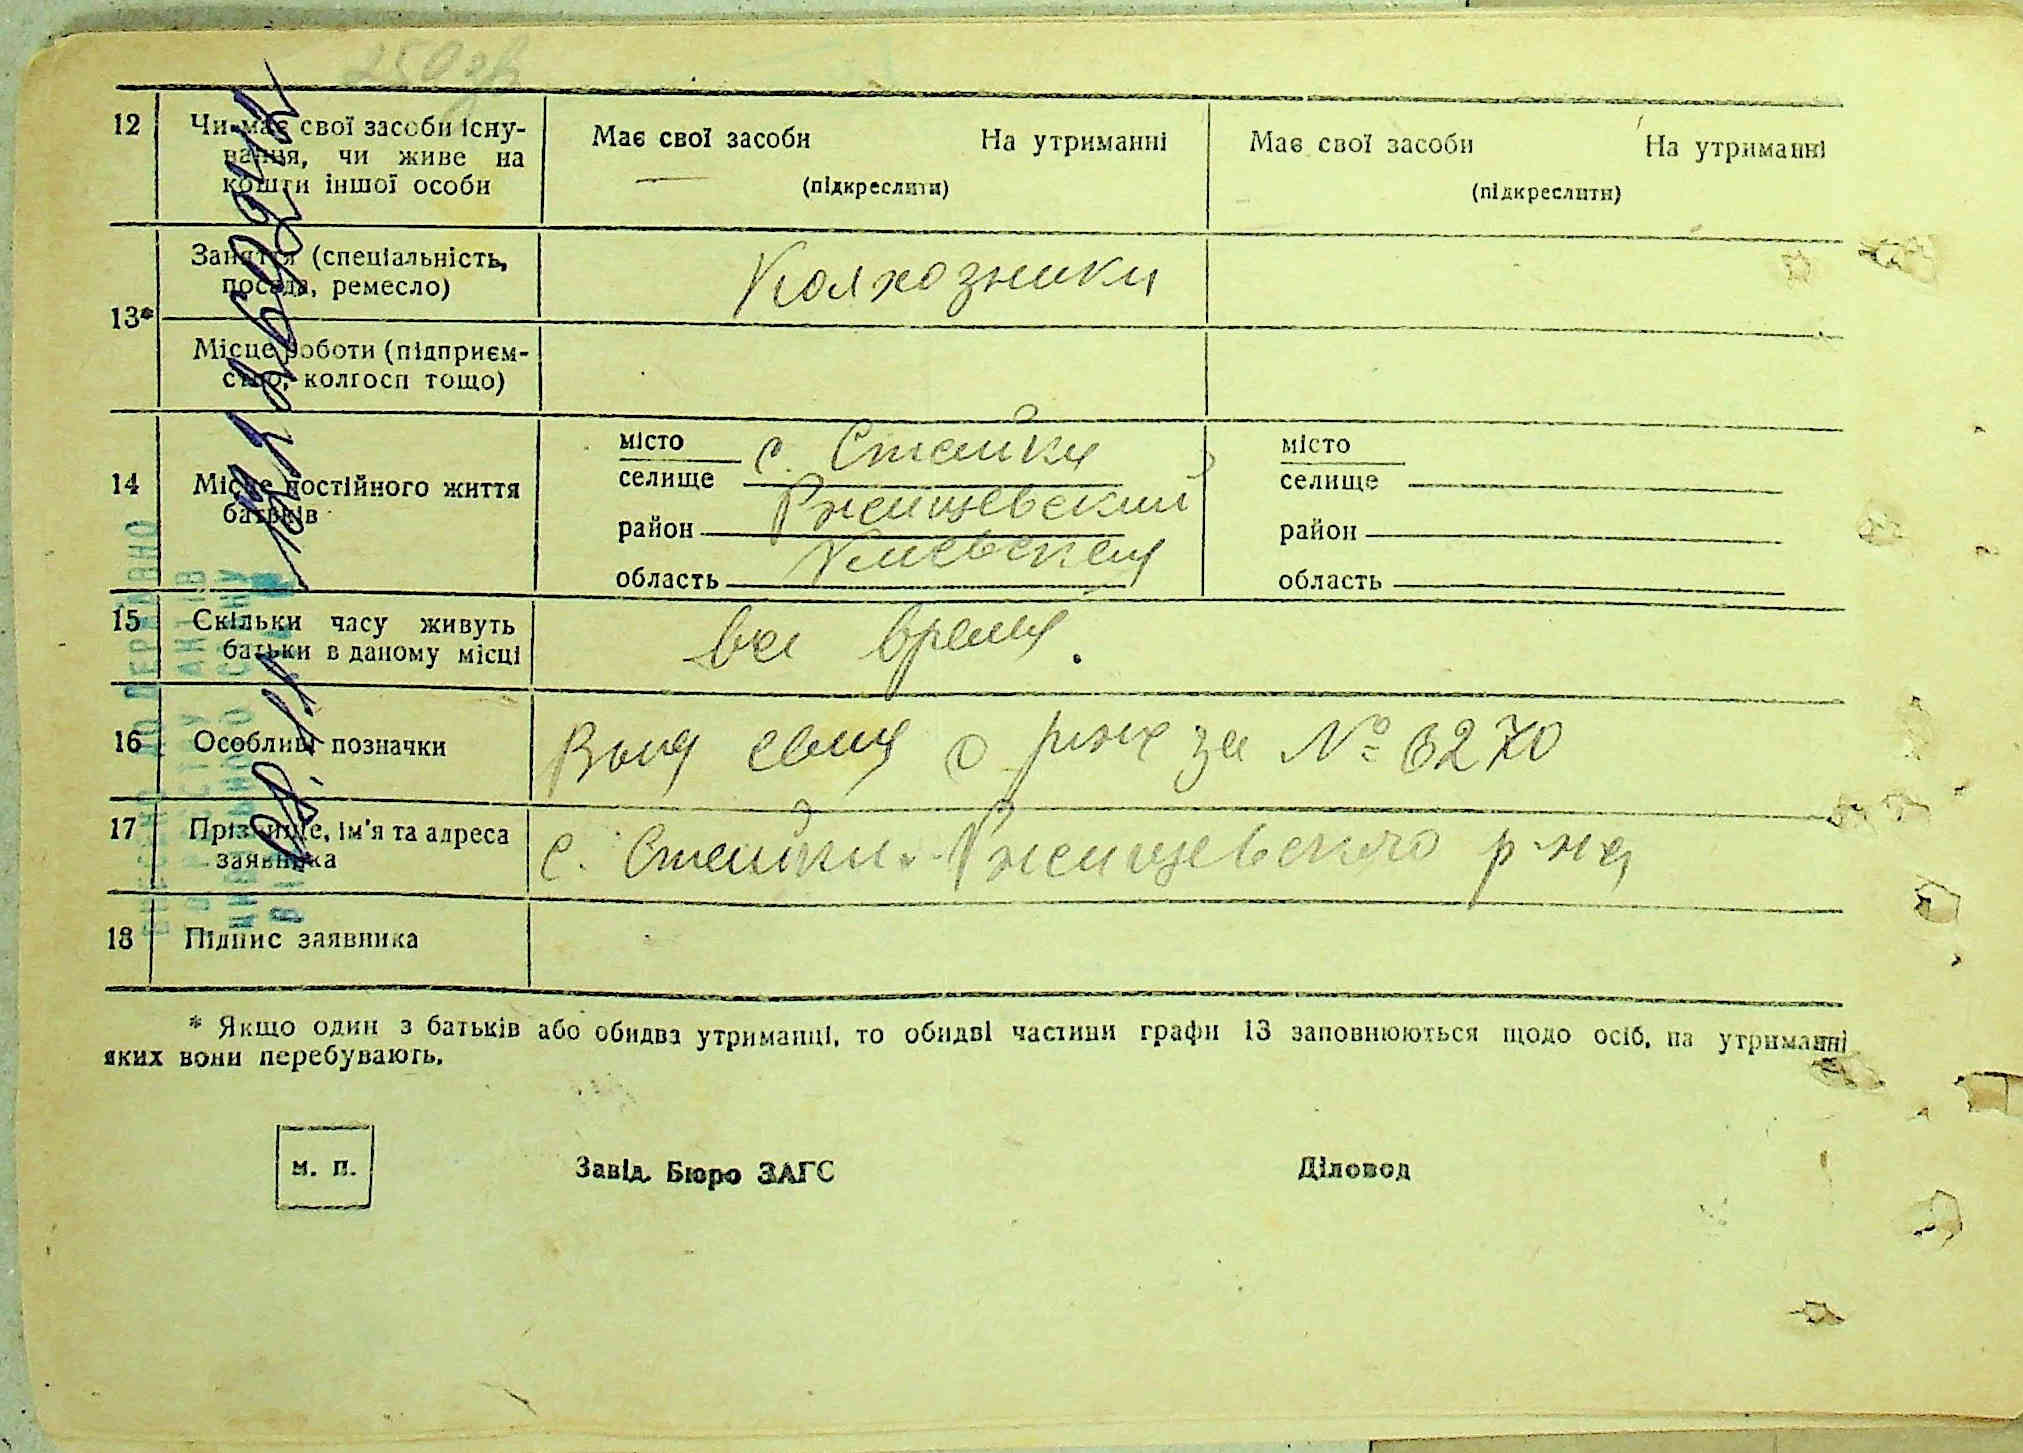 259 зв
12 Чи має свої засоби існу-
вання, чи живе на
кошти іншої особи
Має свої засоби На утриманні
(підкреслити)
Має свої засоби На утриманні
(підкреслити)
13*
Заняття (спеціальність,
посада, ремесло)
Колхозники
Місце роботи (підприєм-
ство, колгосп тощо)
14 Місце постійного життя
батьків
місто
селище с. Стайки
район Ржищевский
область Киевская
місто
селище
район
область
15 Скільки часу живуть
батьки в даному місці
все время.
16 Особливі позначки
Выд свид о рож за № 6270
17 Прізвище, ім'я та адреса
заявника
с. Стайки Ржищевского р-на
18 Підпис заявника
* Якщо один з батьків або обидва утриманці, то обидві частини графи 13 заповнюються щодо осіб, на утриманні
яких вони перебувають.
м. п. Завід. Бюро ЗАГС Діловод